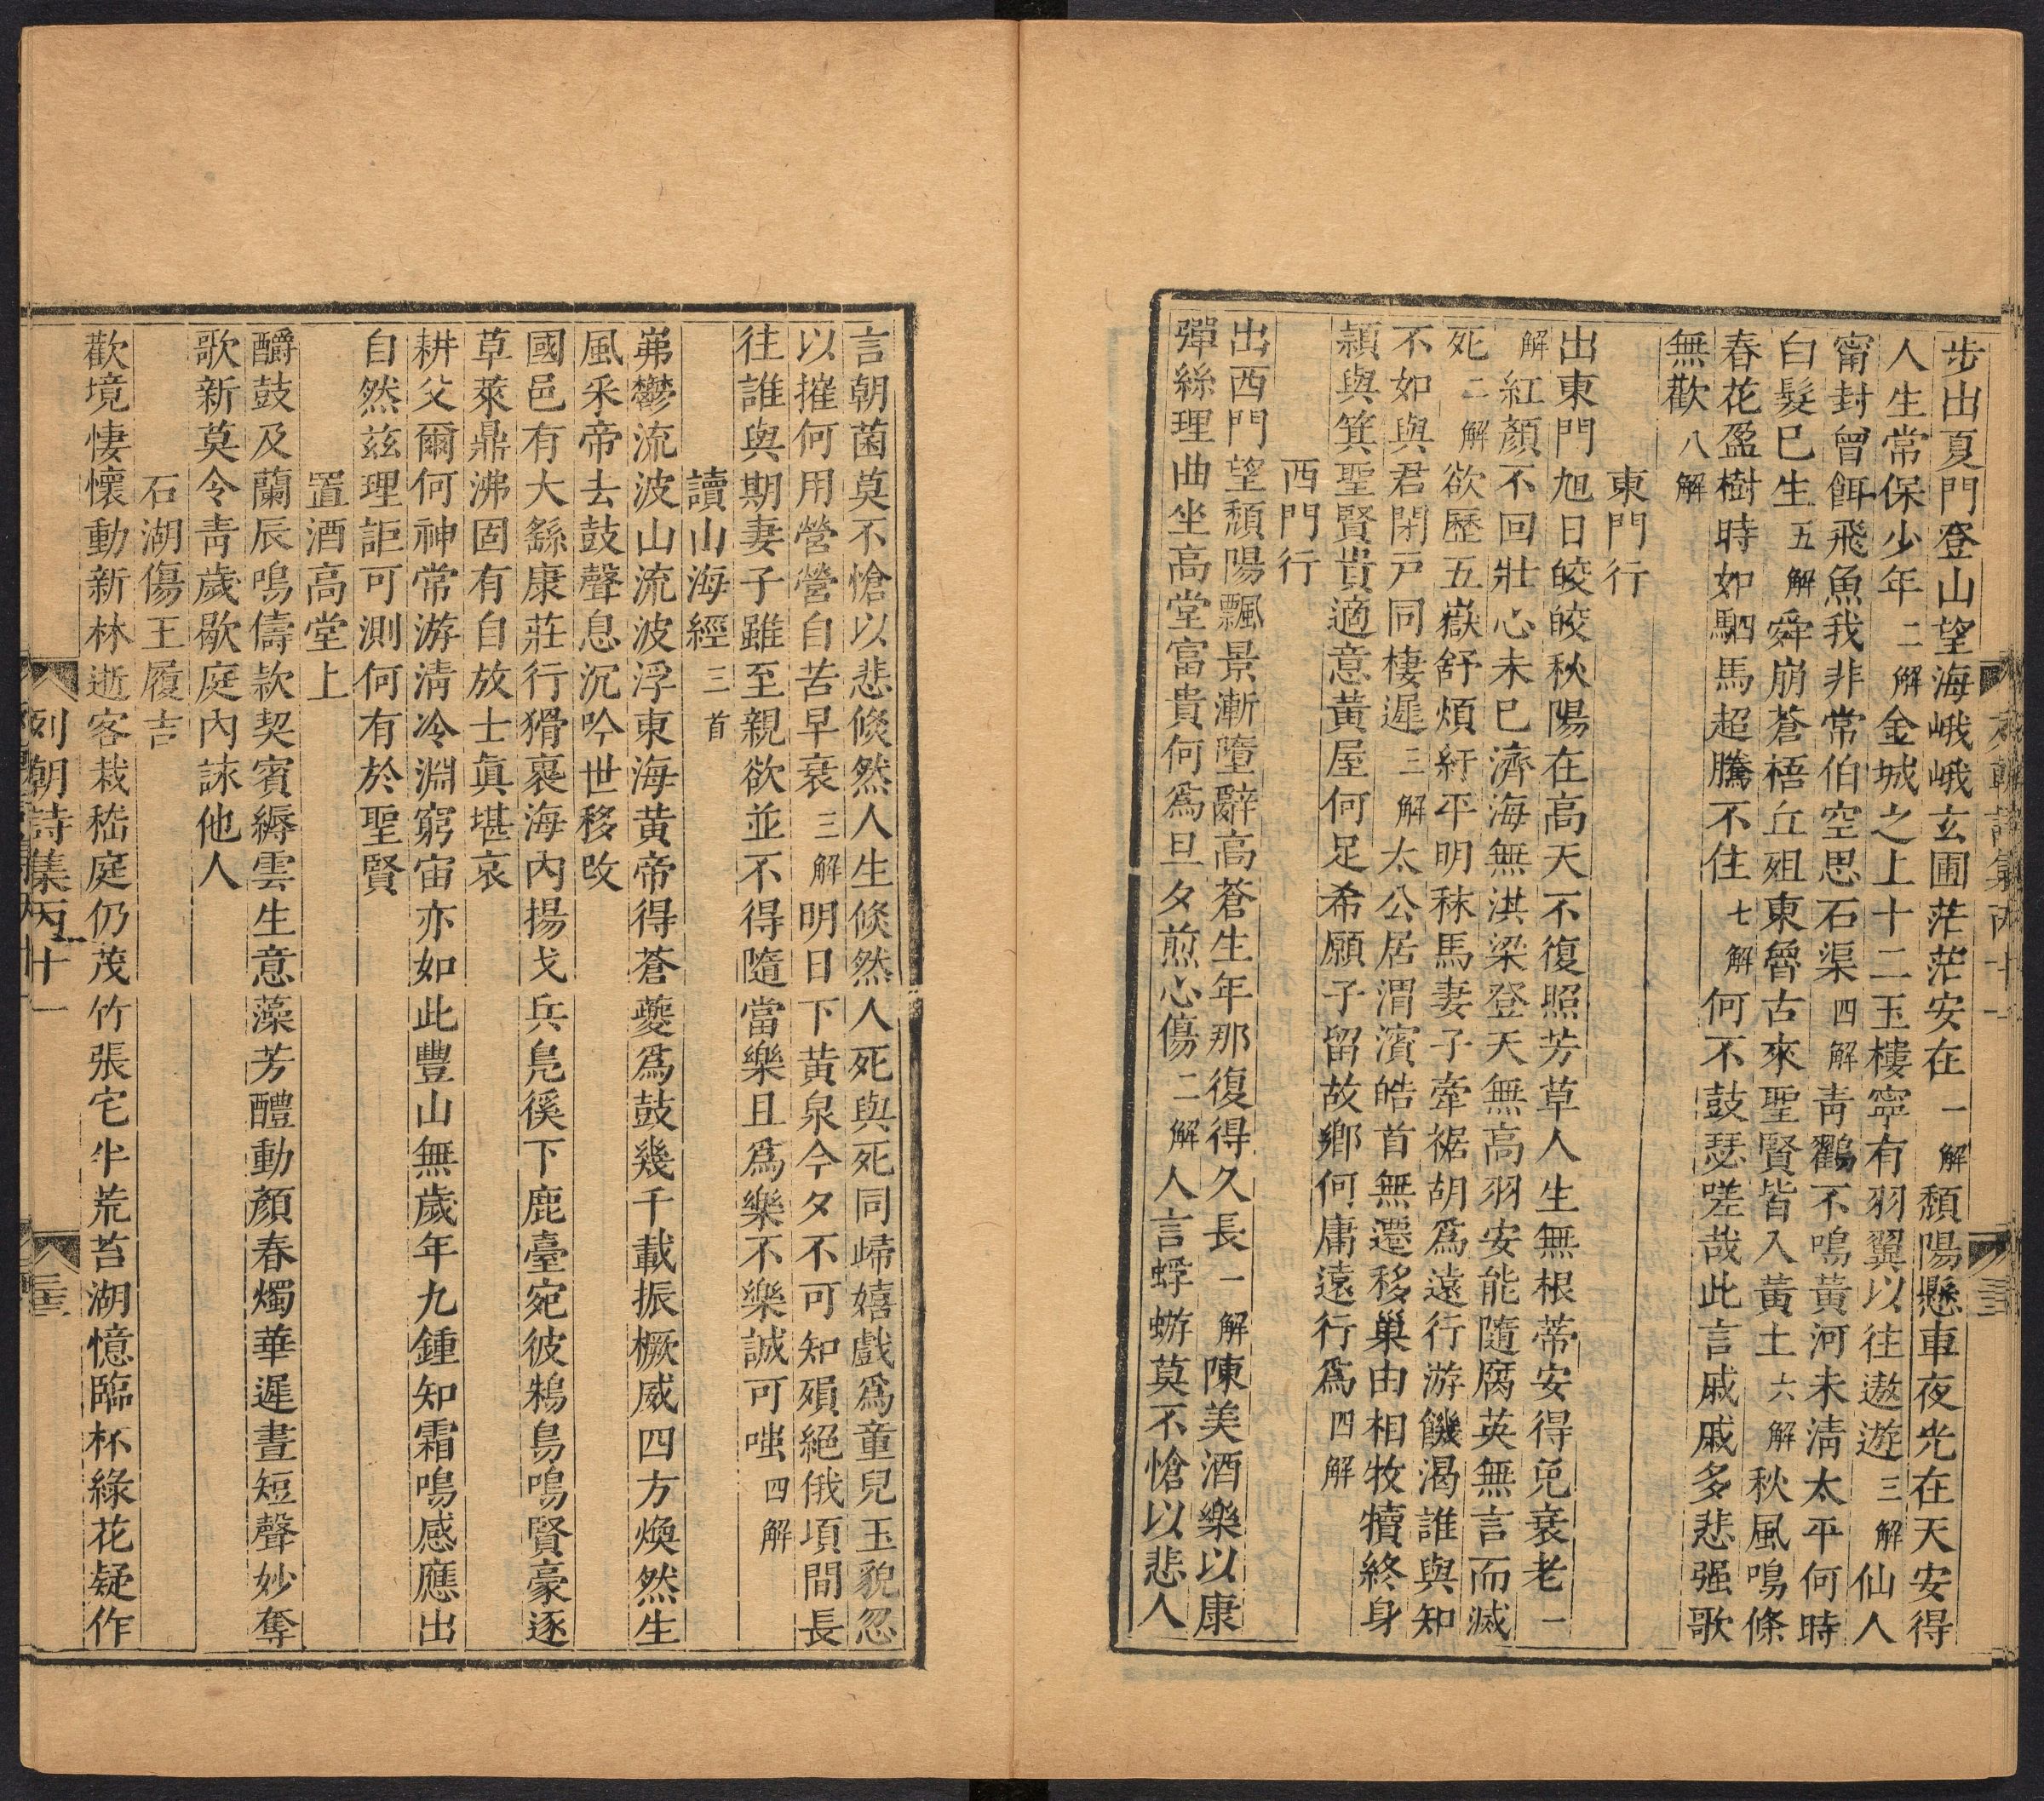 步出夏門登山望海峨峨玄圃茫茫安在一解頹陽懸車夜光在天安得
人生常保少年二解金城之上十二玉樓寧有羽翼以往遨遊三解仙人
甯封曾餌飛魚我非常伯空思石渠四解青鸖不鳴黃河未清太平何時
白髮巳生五解舜崩蒼梧丘殂東魯古來聖賢皆入黃土六解秋風鳴條
春花盈樹時如駟馬超騰不住七解何不鼓瑟嗟哉此言戚戚多悲强歌
無歡八解
東門行
出東門旭日皎皎秋陽在高天不復照芳草人生無根蒂安得免衰老一
解紅顏不回壯心未巳濟海無淇梁登天無高羽安能隨腐英無言而滅
死二解欲歷五嶽舒煩紆平明秣馬妻子牽裾胡爲遠行游饑渴誰與知
不如與君閉戸同棲遲三解太公居渭濱皓首無遷移巢由相牧犢終身
潁與箕聖賢貴適意黃屋何足希願子留故鄉何庸遠行爲四解
西門行
出西門望頹陽飄景漸墮辭高蒼生年那復得久長一解陳美酒樂以康
彈絲理曲坐高堂富貴何爲旦夕煎心傷二解人言蜉蝣莫不愴以悲人
言朝菌莫不愴以悲倐然人生倐然人死與死同歸嬉戲爲童兒玉貌忽
以摧何用營營自苦早衰三解明日下黃泉今夕不可知殞絕俄項間長
往誰與期妻子雖至親欲並不得隨當樂且爲樂不樂誠可嗤四解
讀山海經三首
岪鬱流波山流波浮東海黃帝得蒼夔爲鼓幾千載振橛威四方煥然生
風釆帝去鼓聲息沉吟世移攺
國邑有大繇康莊行猾褢海內揚戈兵凫徯下鹿臺宛彼鴸鳥鳴賢豪逐
草萊鼎沸固有自放士眞堪哀
耕父爾何神常游淸冷淵窮宙亦如此豐山無歲年九鍾知霜鳴感應出
自然兹理詎可測何有於聖賢
置酒高堂上
釂鼓及蘭辰鳴儔款契賓縟雲生意藻芳醴動顏春燭華遲晝短聲妙奪
歌新莫令青歲歇庭內誺他人
石湖傷王履吉
歡境悽懷動新林逝客栽嵇庭仍茂竹張宅半荒苔湖憶臨杯綠花疑作
列朝詩集丙十一